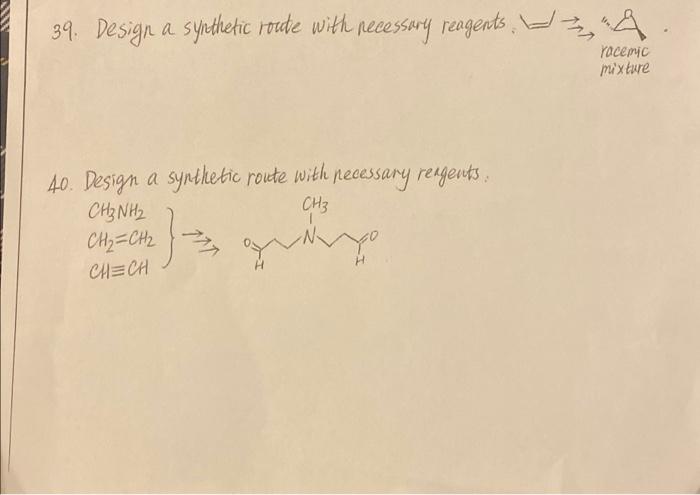 39. Design a synthetic route with necessary reagents.
racemic
mixture
40. Design a synthetic route with necessary reagents.
CH3NH2
CH2=CH2
CH≡CH
CH3
N
O
H
O
H